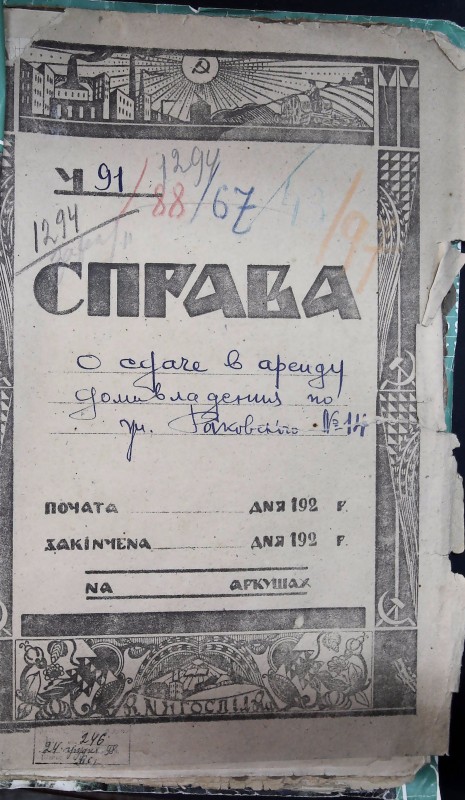 Ч 91/88/67/
1294
1294
СПРАВА
О сдаче в аренду
домовладения по
ул. Раковского №14
ПОЧАТА ДНЯ 192 Р.
ЗАКІНЧЕНА ДНЯ 192 Р.
НА АРКУШАХ
КНИГОСПІЛКА
246
24